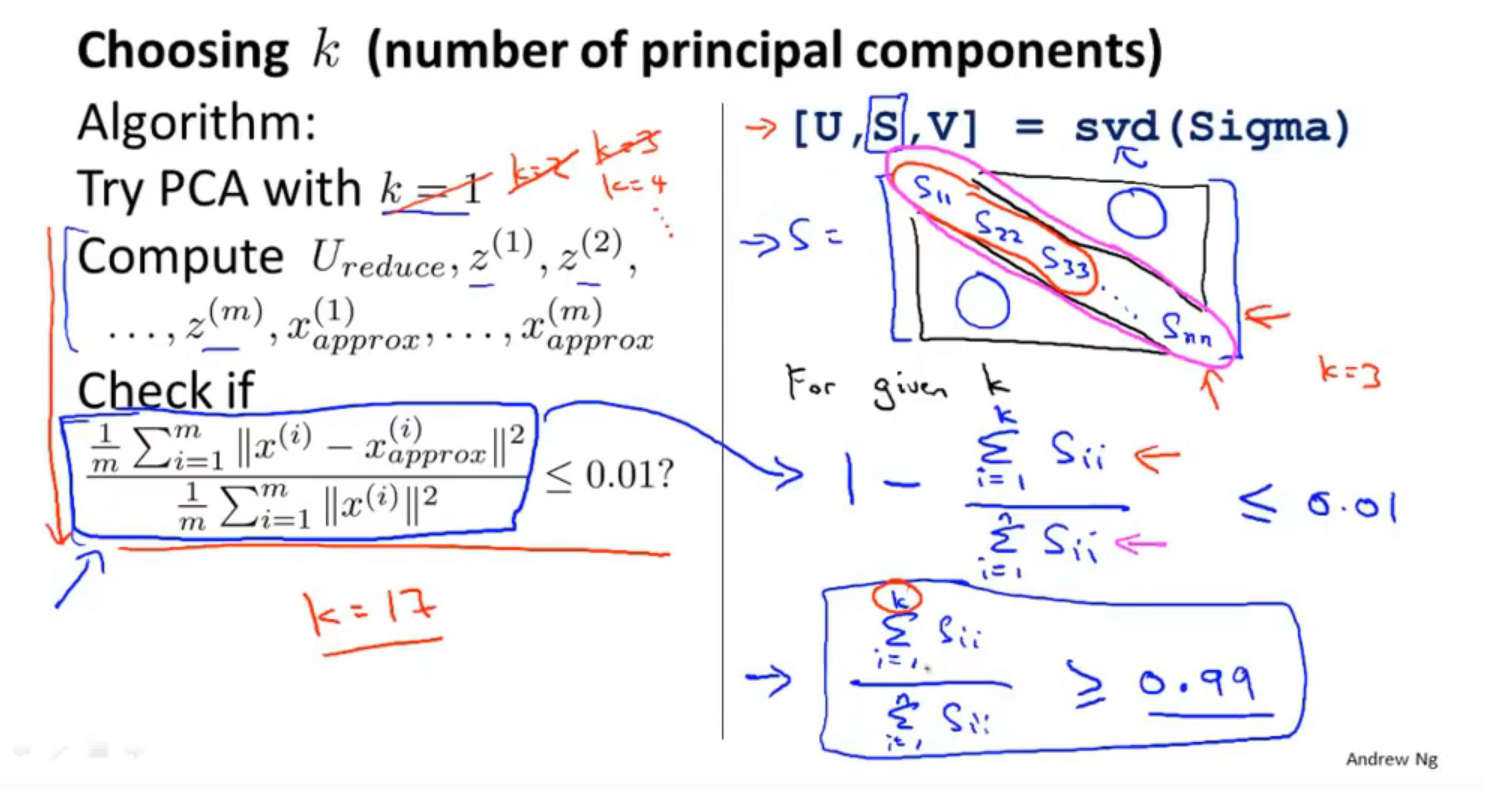 Choosing k (number of principal components)
Algorithm:
Try PCA with k = 1 k=2 k=3
k=4
Compute U_reduce, z^(1), z^(2),
..., z^(m), x_approx^(1), ..., x_approx^(m)
Check if
\frac{\frac{1}{m} \sum_{i=1}^{m} ||x^(i) − x_approx^(i)||^2}{\frac{1}{m} \sum_{i=1}^{m} ||x^(i)||^2} ≤ 0.01?
k = 17
→ [U,S,V] = svd(Sigma)
→ S =
S11
S22
S33
....
Snn
k=3
For given k
1 − \frac{\sum_{i=1}^{k} Sii}{\sum_{i=1}^{n} Sii} ≤ 0.01
→ \frac{\sum_{i=1}^{k} Sii}{\sum_{i=1}^{n} Sii} ≥ 0.99
Andrew Ng